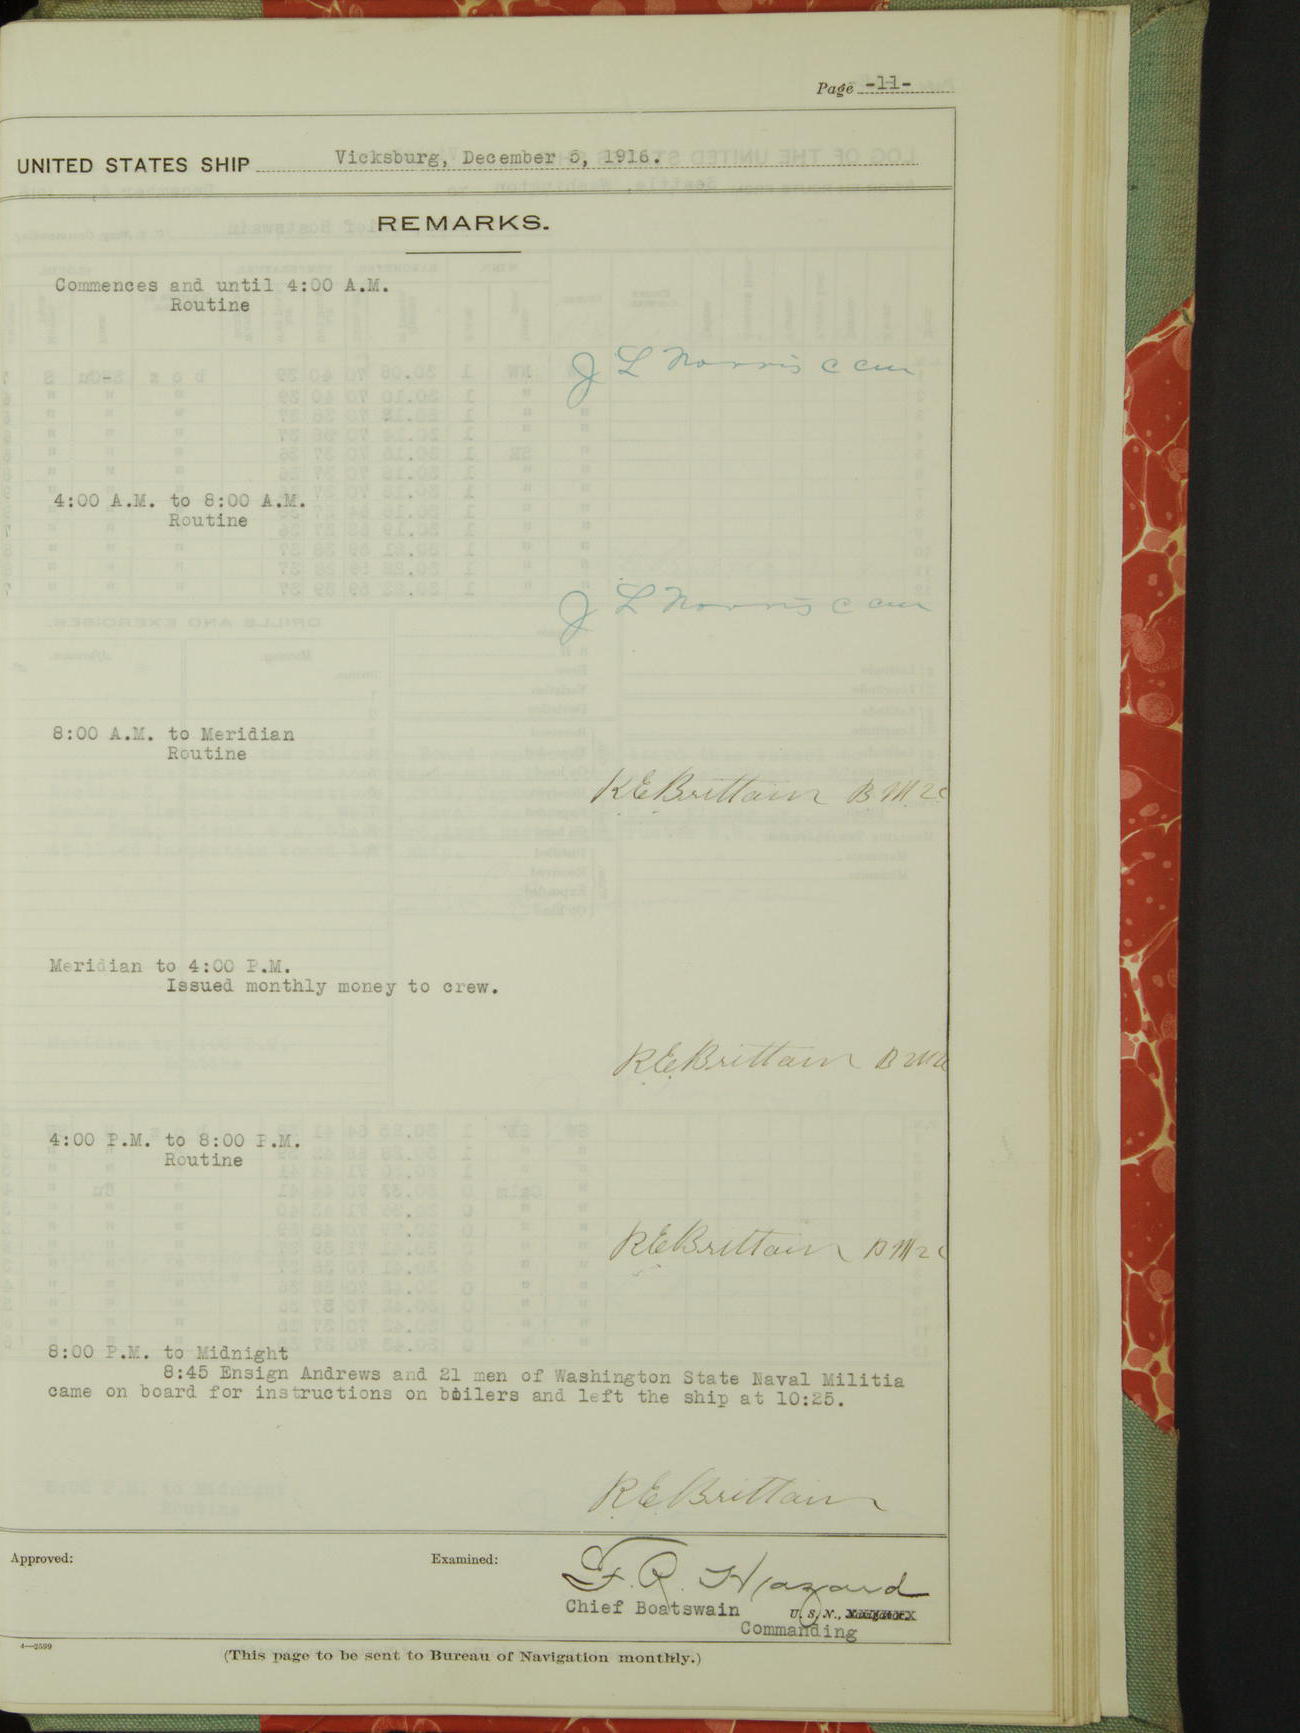 Page -11-
UNITED STATES SHIP Vicksburg, December 5, 1916.
REMARKS.
Commences and until 4:00 A.M.
Routine
J L Norris C CM
4:00 A.M. to 8:00 A.M.
Routine
J L Norris C CM
8:00 A.M. to Meridian
Routine
R E Brittain B M 2c
Meridian to 4:00 P.M.
Issued monthly money to crew.
R E Brittain
4:00 P.M. to 8:00 P.M.
Routine
R E Brittain B M 2c
8:00 P.M. to Midnight
8:45 Ensign Andrews and 21 men of Washington State Naval Militia
came on board for instructions on boilers and left the ship at 10:25.
R E Brittain
Approved:
Examined:
F. R. Hazard
Chief Boatswain U. S. N., Navigator.
Commanding
4—2599
(This page to be sent to Bureau of Navigation monthly.)